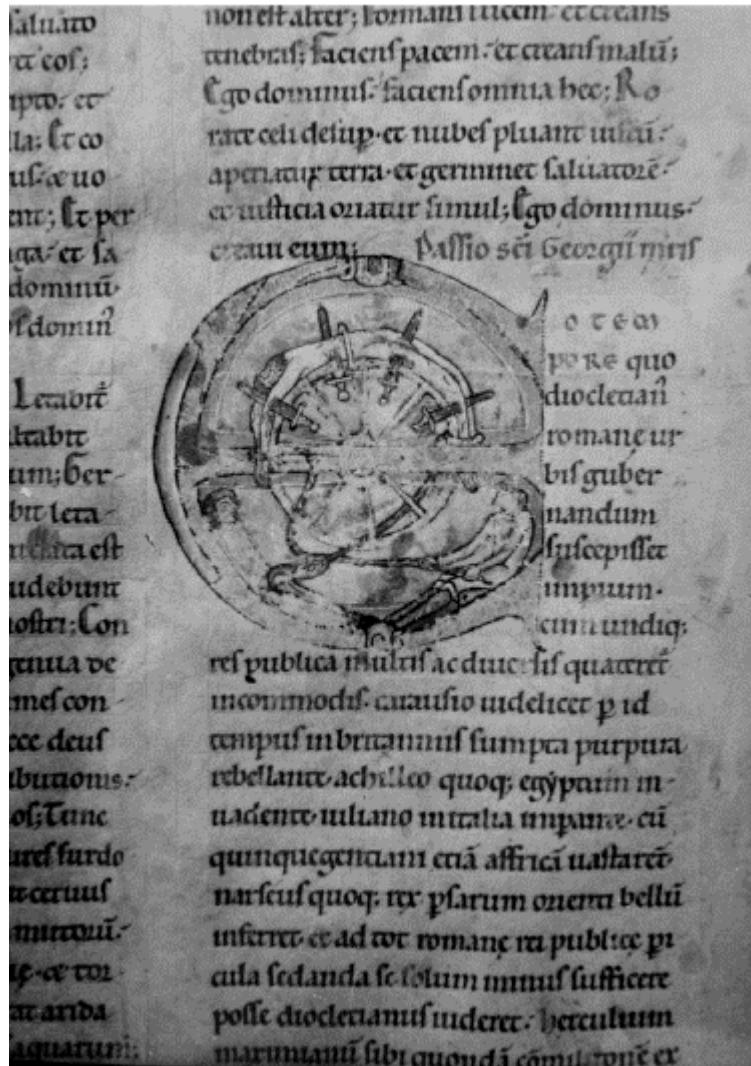 saluato
et eos;
ipto. et
lla; Et co
us. æ uo
ent; Et per
iga. et sa
dominū.
domin̄
Letabit᷑
altabit
um; Ger
bit leta
est
udebunt
nostri; Con
genua de
mes con
ecce deus
ibutionis.
os; Tunc
aures surdo
ceruus
mutorū.
æ tor
arida
aquarum;
non est alter; Formans lucem. et creans
tenebras; faciens pacem. et creans malū;
Ego dominus. faciens omnia hec; Ro
rate celi desup̱. et nubes pluant iustū.
aperiatur terra. et germinet saluatorē.
et iusticia oriatur simul; Ego dominus.
creaui eum; Passio sc̄i Georgii mris
E O TEM
PORE quo
diocletian̄
romanę ur
bis guber
nandum
suscepisset
impium.
cum undiq;
res publica multis ac diuersis quateret᷑
incommodis. carausio uidelicet ꝑ id
tempus in britanniis sumpta purpura
rebellante. achilleo quoq; egẏptum in
uadente. iuliano in italia imp̱ante. cū
quinquegentiani etiā affricā uastarent.
narseus quoq; rex p̱sarum orienti bellū
inferret. et ad tot romanę rei publicę p̱i
cula sedanda se solum minus sufficere
posse diocletianus uideret. herculium
maximianū sibi quondā cōmilitonē ex